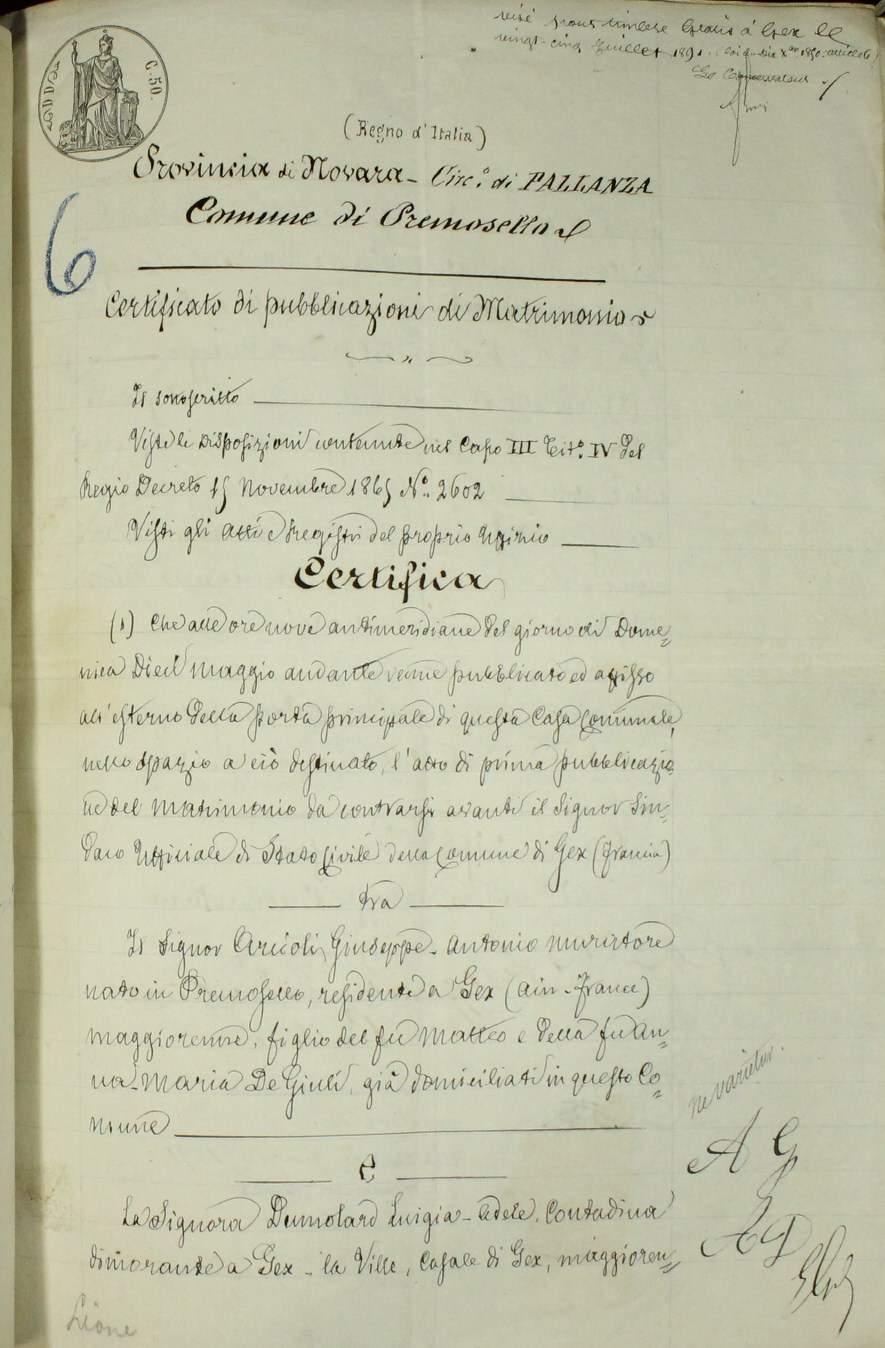 visé pour timbre Gratis à Gex le
vingt-cinq Juillet 1891. (Loi du dix Xbre 1850. article 4)
Le Conservateur
C. 50.
(Regno d'Italia)
Provincia di Novara - Circ.º di PALLANZA
Comune di Premosello
6
Certificato di pubblicazioni di Matrimonio
Il sottoscritto
Viste le Disposizioni contenute nel Capo III Tit.º IV del
Regio Decreto 15 Novembre 1865 Nº. 2602
Visti gli atti e Registri del proprio Uffizio
Certifica
(1) Che alle ore nove antimeridiane del giorno di Dome=
nica Dieci Maggio andante venne pubblicato ed affisso
all'esterno della porta principale di questa Casa Comunale,
nello spazio a ciò destinato, l'atto di prima pubblicazio
ne del matrimonio da contrarsi avanti il Signor Sin=
daco Uffiziale di Stato Civile della Comune di Gex (Francia)
tra
Il Signor Aricoli Giuseppe-Antonio muratore
nato in Premosello, residente a Gex (Ain-France)
maggiorenne, figlio del fu Matteo e della fu An=
na-Maria De Giuli, già domiciliati in questo Co=
mune
E
La Signora Dumolard Luigia-Adele, Contadina
dimorante a Gex-la Ville, Casale di Gex, maggioren=
ne varietur.
A G
A D
Lione